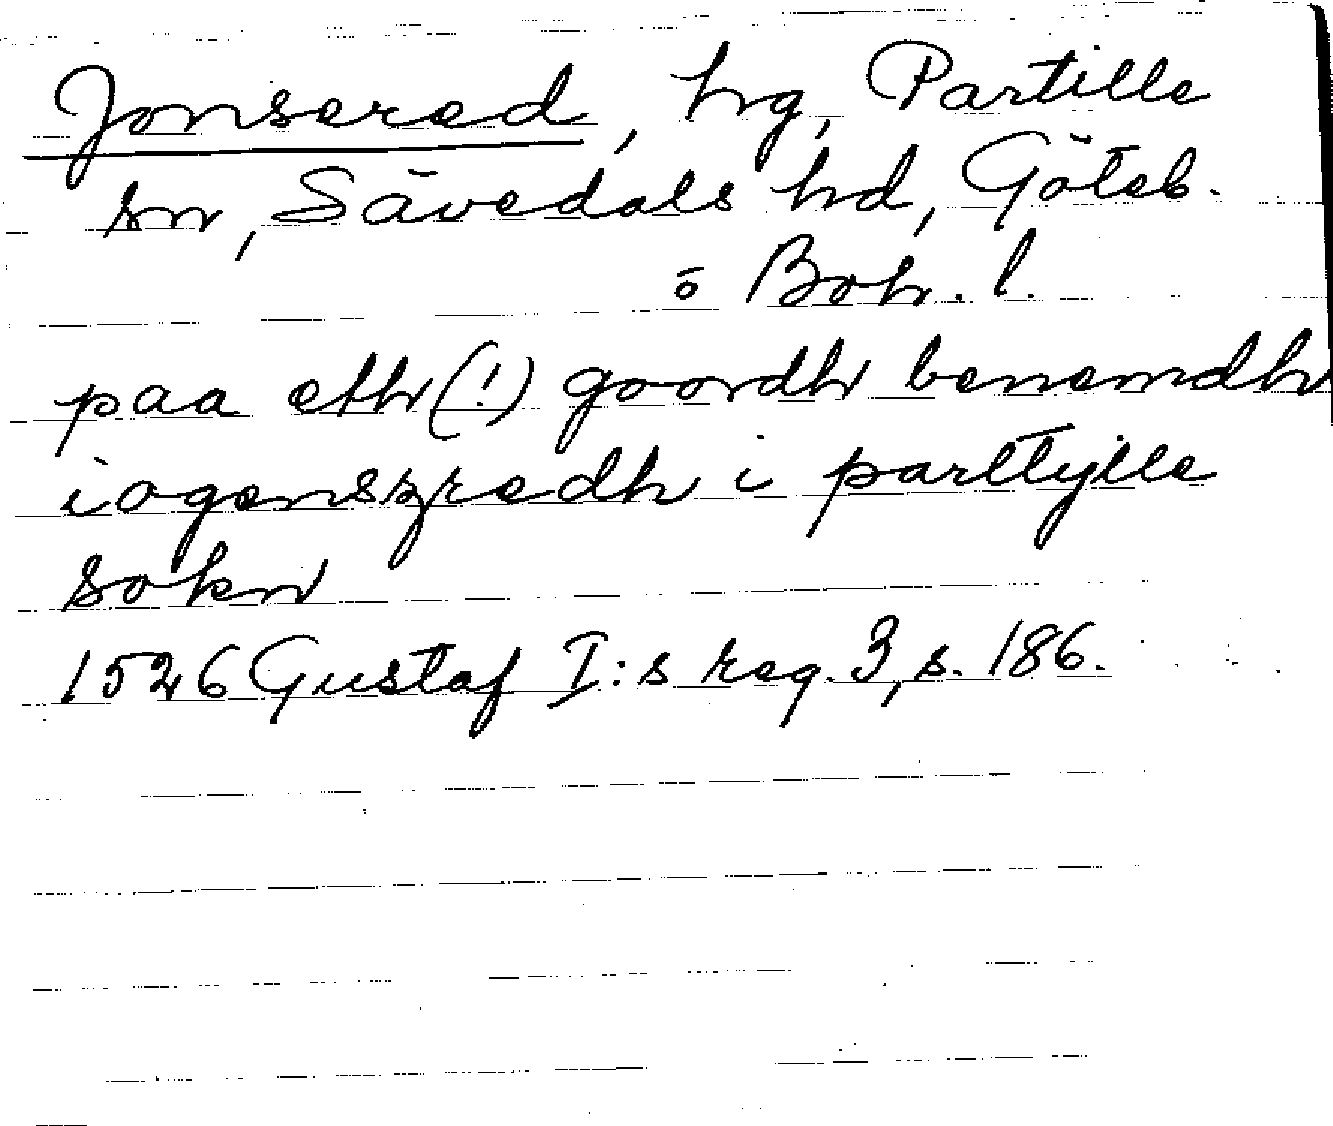 Jonsered, hg, Partille
sn, Sävedals hd, Göteb.
o Boh. l.
paa eth(!) goordh benemdh
iogenszredh i parttylle
sokn
1526 Gustaf I:s reg. 3, s. 186.